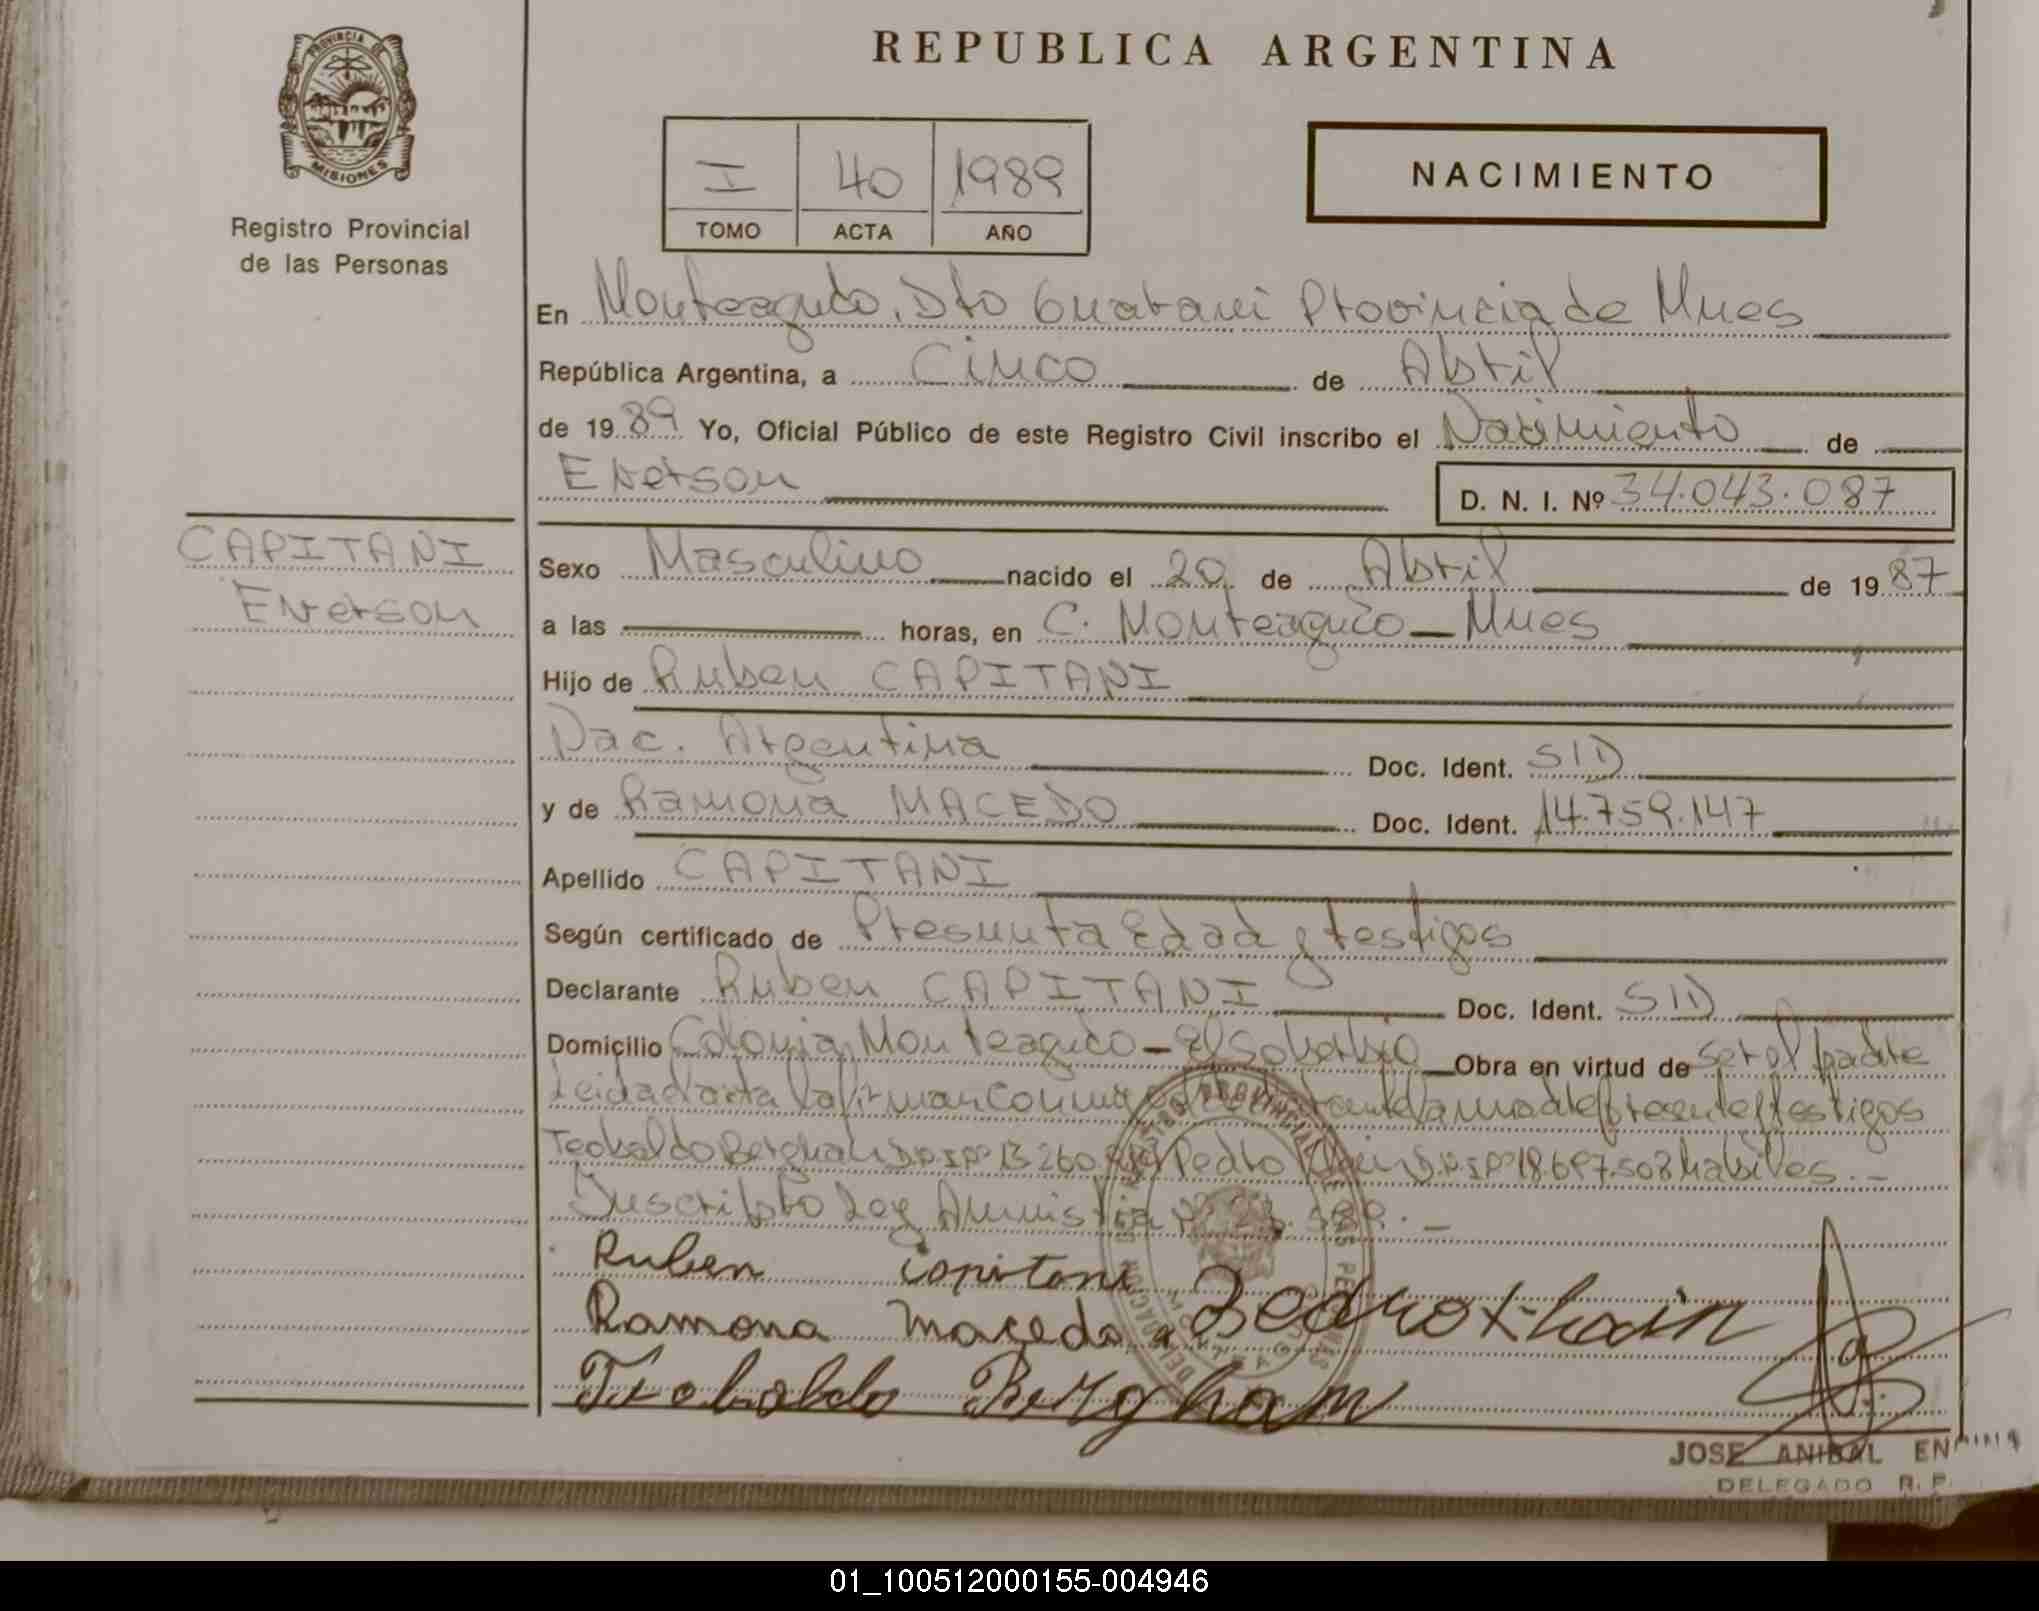 REPUBLICA ARGENTINA
PROVINCIA DE
MISIONES
Registro Provincial
de las Personas
I 40 1989
TOMO ACTA AÑO
NACIMIENTO
En Monteagudo, Dto Guarani Provincia de Mnes
República Argentina, a Cinco de Abril
de 1989 Yo, Oficial Público de este Registro Civil inscribo el Nacimiento de
Enerson
D. N. I. Nº 34.043.087
CAPITANI
Enerson
Sexo Masculino nacido el 20 de Abril de 1987
a las horas, en C. Monteagudo - Mnes
Hijo de Ruben CAPITANI
Nac. Argentina Doc. Ident. S/D
y de Ramona MACEDO Doc. Ident. 14.759.147
Apellido CAPITANI
Según certificado de Presunta Edad y testigos
Declarante Ruben CAPITANI Doc. Ident. S/D
Domicilio Colonia Monteagudo - El Soberbio Obra en virtud de ser el padre
Leida el acta la firman conmigo la madre presente y testigos
Teobaldo Berghan D.N.I Nº 13.260 Pedro D.N.I Nº 18.697.503 habiles. -
Inscripto Ley Amnistia Nº -
Ruben Capitani
Ramona Macedo
Teobaldo Bergham
JOSE ANIBAL
DELEGADO R. P.
01_100512000155-004946